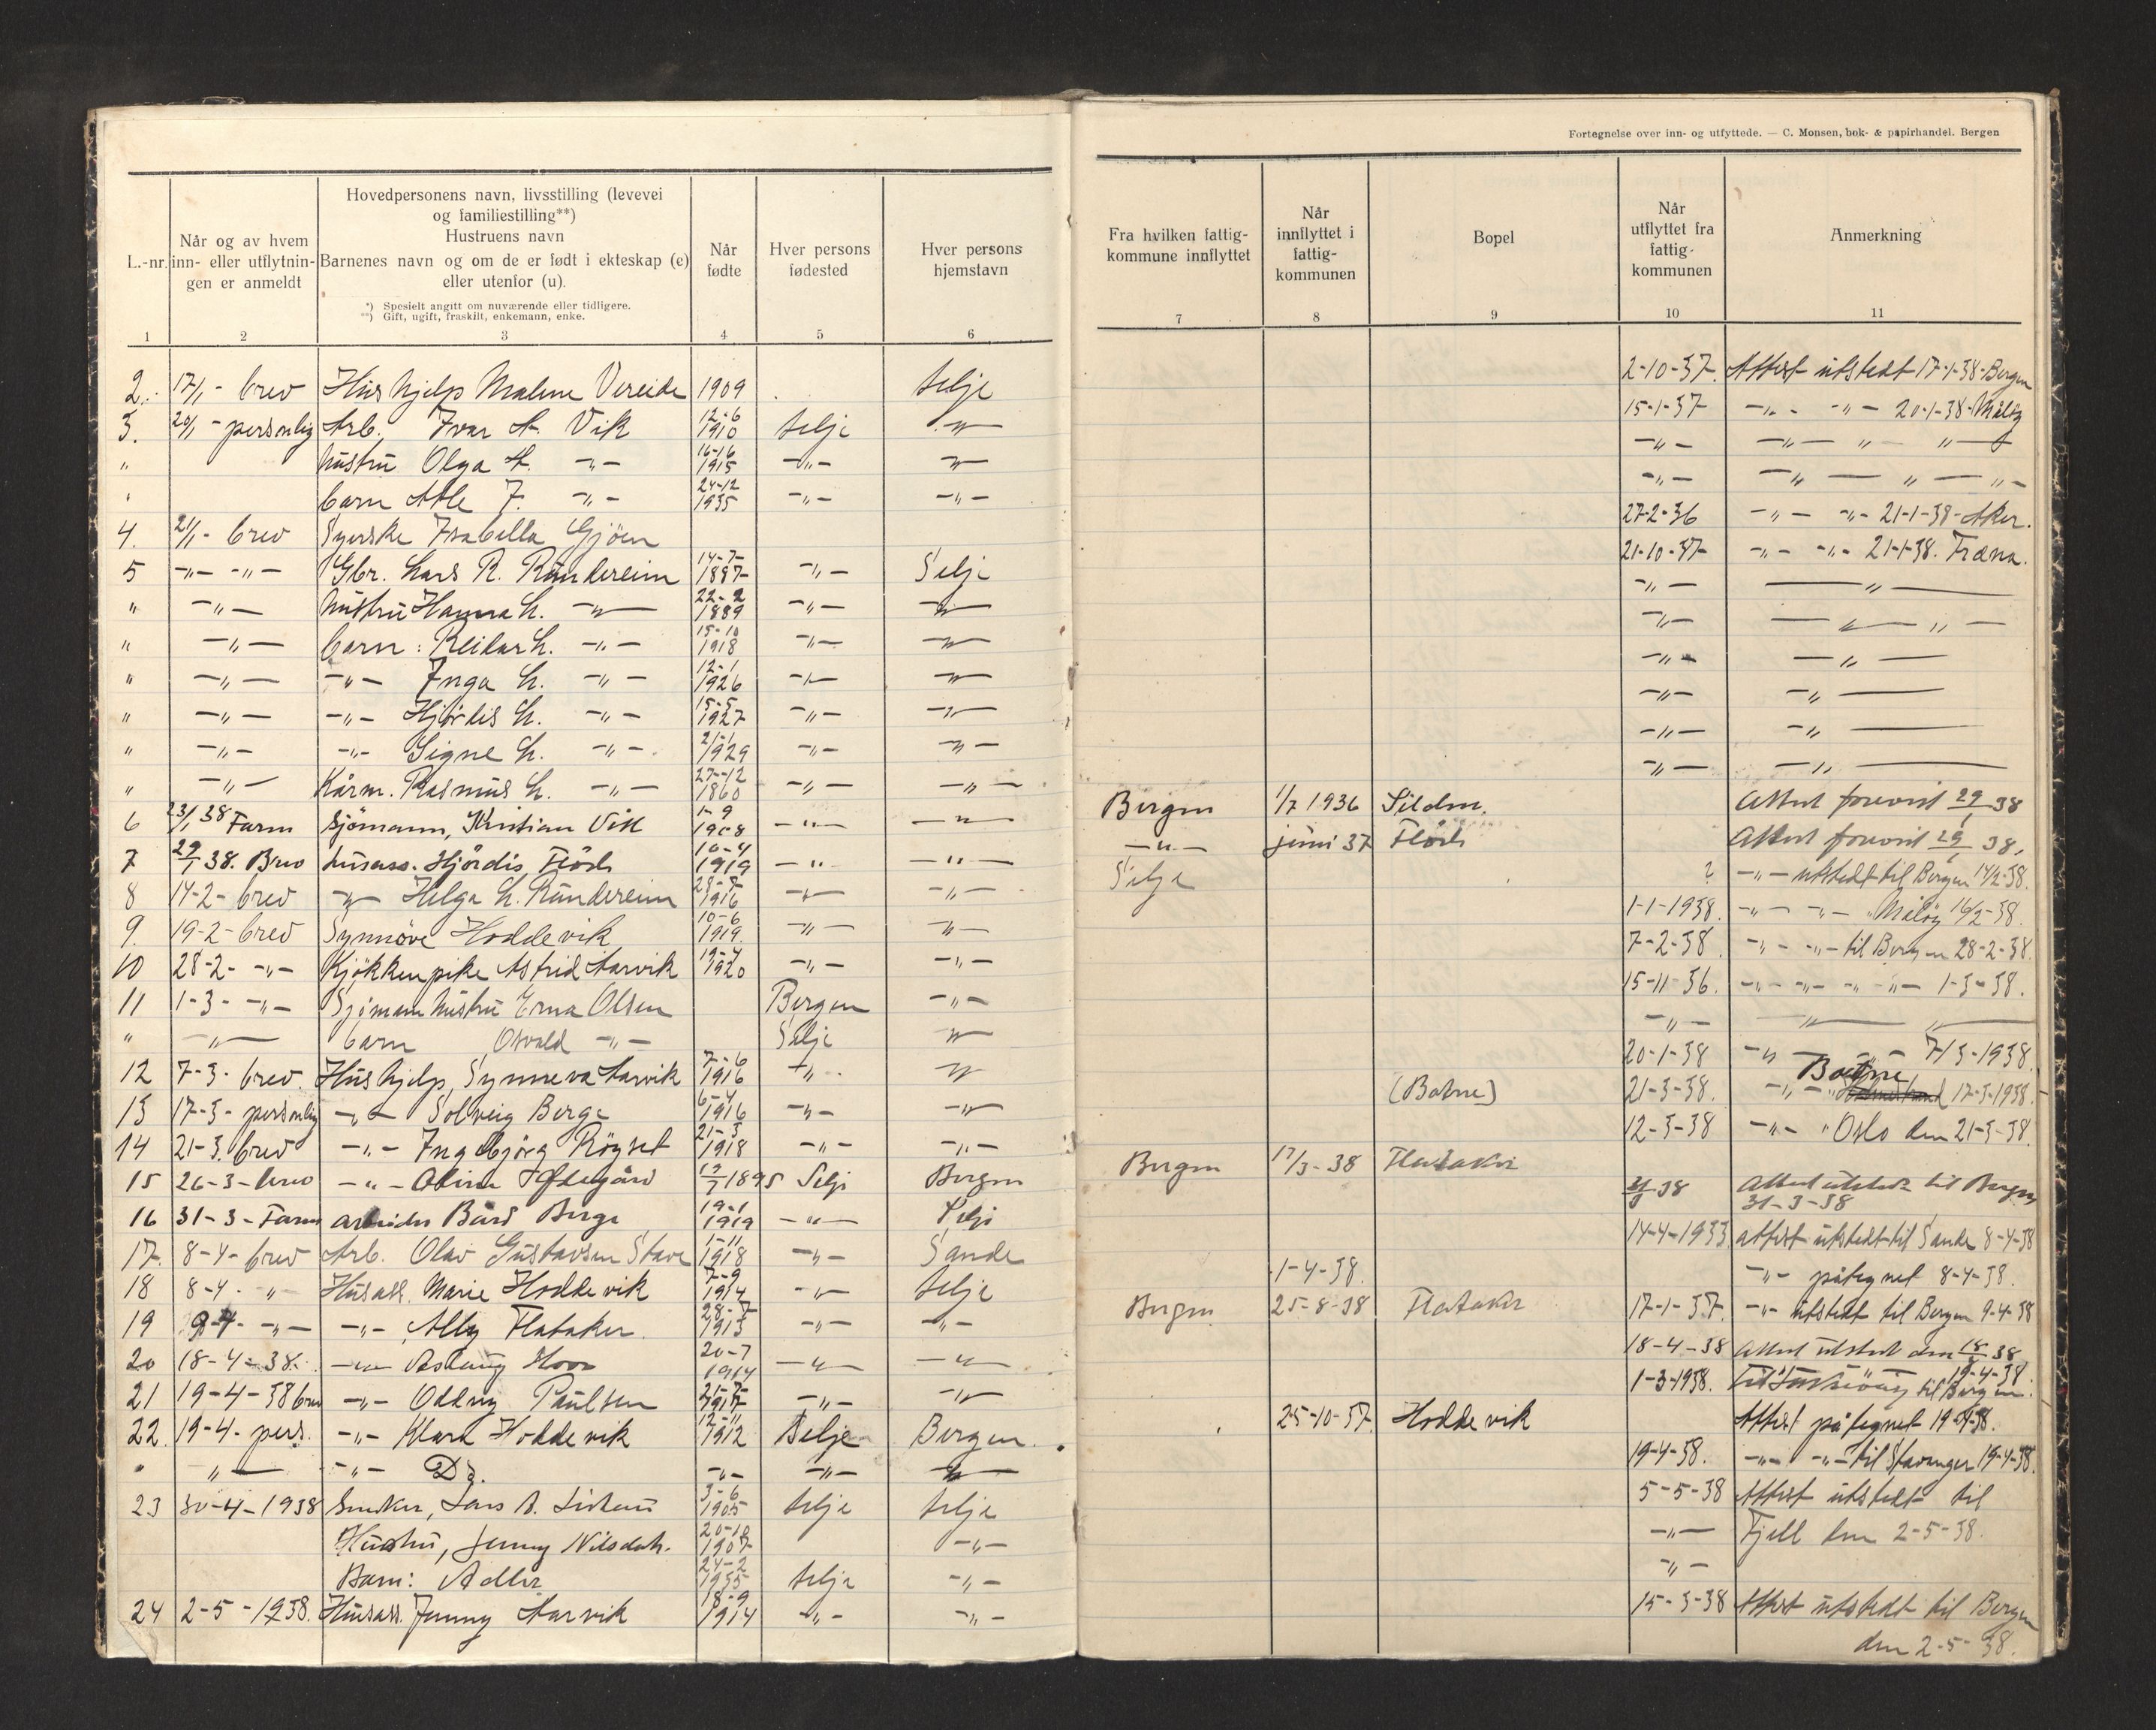 Fortegnelse over inn- og utflyttede. — C. Monsen, bok- & papirhandel. Bergen
L.-nr.
Når og av hvem inn- eller utflytnin-gen er anmeldt
Hovedpersonens navn, livsstilling (levevei
og familiestilling**)
Hustruens navn
Barnenes navn og om de er født i ekteskap (e)
eller utenfor (u).
*) Spesielt angitt om nuværende eller tidligere.
**) Gift, ugift, fraskilt, enkemann, enke.
Når fødte
Hver persons fødested
Hver persons hjemstavn
Fra hvilken fattig-kommune innflyttet
Når innflyttet i fattig-kommunen
Bopel
Når utflyttet fra fattig-kommunen
Anmerkning
1 2 3 4 5 6 7 8 9 10 11
2. 17/1 - brev Hushjelp Malene Vereide 1909 Selje 2-10-37. Attest utstedt 17-1-38 - Bergen
3. 20/1 - personlig Arb. Ivar A. Vik 12-6 1910 Selje -"- 15-1-37 -"- -"- 20-1-38 - Måløy
" hustru Olga A. -"- 16-16 1915 -"- -"- -"- -"- " "
" barn Atle I. -"- 24-12 1935 -"- -"- -"- -"- " -"-
4. 21/1 - brev Syerske Isabella Gjöen 27-2-36 -"- -"- 21-1-38 - Aker.
5 -"- -"- Gbr. Lars R. Rundereim 14-7- 1887 -"- Selje 21-10-37 -"- -"- 21-1-38. Fræna.
" -"- hustru Hanna L. -"- 22-2 1889 -"- -"- -"- -"-
" -"- barn: Reidar L. -"- 15-10 1918 -"- -"- -"- -"- -"-
" -"- -"- Inga L. -"- 12-1 1926 -"- -"- -"- -"-
" -"- -"- Hjördis L. -"- 15-5 1927 -"- -"- -"- -"-
" -"- -"- Signe L. -"- 21-1 1929 -"- -"- -"- -"-
" -"- Kårm. Rasmus L. -"- 27-12 1860 -"- -"- -"- -"-
6 23/1 38 Farm Sjömann, Kristian Vik 1-9 1908 -"- -"- Bergen 1/7 1936 Attest forevist 29/1 38
7 29/1 38. Brev husass. Hjördis Flöde 10-4 1919 -"- -"- -"- juni 37 Attest forevist 29/1 38.
8 14-2- brev -"- Helga L. Rundereim 28-8 1916 -"- -"- Selje ? -"- utstedt til Bergen 14/2-38.
9. 19-2- brev Synnöve Hoddevik 10-6 1919. -"- -"- 1-1-1938. -"- -"- " Måløy 16/2-38.
10 28-2- -"- Kjökkenpike Astrid Aarvik 19-4 1920 -"- -"- 7-2-38. -"- -"- til Bergen 28-2-38.
11 1-3- -"- Sjömann hustru Erna Olsen Bergen -"- 15-11-36. -"- -"- -"- -"- 1-3-38.
" -"- barn Osvald -"- Selje -"- -"- -"-
12 7-3- brev. Hushjelp, Synneva Aarvik 7-6 1916 -"- -"- 20-1-38 -"- 7/3-1938.
13 17-3- personlig -"- Solveig Berge 6-4 1916 -"- -"- (Botne) 21-3-38. -"- Botne 17-3-1938.
14 21-3. brev -"- Ingebjörg Röyset 21-3 1918 -"- -"- 12-3-38 -"- " Oslo den 21-3-38.
15 26-3- brev -"- Oline 1895 Selje Bergen Bergen 17/3-38 Flataker
16 31-3- Farm arbeider Bård Berge 19-1 1919 -"- Selje 38 Attest utstedt til Bergen
31-3-38
17. 8-4- brev Arb. Olav Gustavsen Stave 1-11 1918 -"- Sande 14-4-1933 attest utstedt til Sande 8-4-38
18 8-4- " Husass. Marie Hoddevik 7-9 1914 -"- Selje 1-4-38. -"- påtegnet 8-4-38.
19 9-4- -"- -"- Alby Flataker 28-7 1913 -"- -"- Bergen 25-8-38 Flataker 17-1-37. -"- utstedt til Bergen 9-4-38
20 18-4-38. -"- Aslaug 20-7 1914 -"- -"- 18-4-38 Attest utstedt den 38
21 19-4-38 brev -"- Oddny Paulsen 21-7- 1917 -"- -"- 1-3-1938. til Bergen. 19-4-38
22. 19-4- pers. -"- Klara Hoddevik 12-11 1912 Selje Bergen. 25-10-37 Hoddevik Attest påtegnet 19-4-38.
" -"- -"- Do. -"- -"- -"- 19-4-38. -"- -"- til Stavanger 19-4-38.
23 30-4-1938 Snekker, Lars 3-6 1905 Selje Selje 5-5-38 Attest utstedt til
Hustru, Jenny Nilsdatr. 20-10 1907 -"- -"- Fjell den 2-5-38.
Barn: Adler 24-2 1935 Selje -"- -"-
24 2-5-1938. Husass. Jenny Aarvik 18-9 1914 -"- -"- 15-3-38 Attest utstedt til Bergen
den 2-5-38.